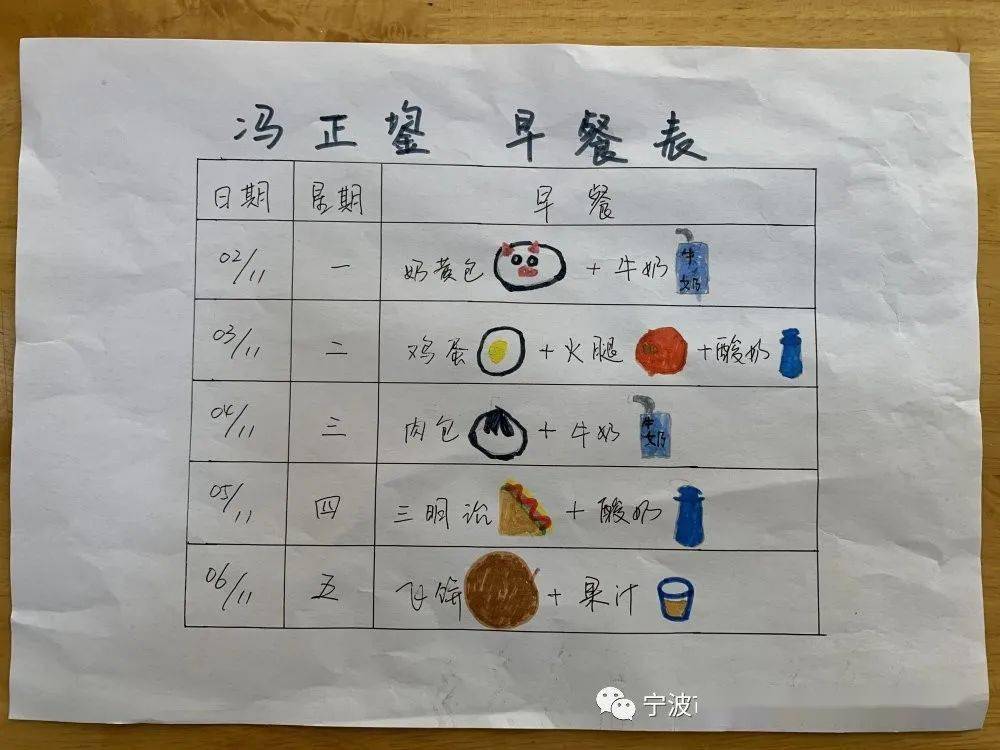 冯正鋆 早餐表
日期 星期 早餐
02/11 一 奶黄包 + 牛奶 牛奶
03/11 二 鸡蛋 + 火腿 + 酸奶
04/11 三 肉包 + 牛奶 牛奶
05/11 四 三明治 + 酸奶
06/11 五 飞饼 + 果汁
宁波i